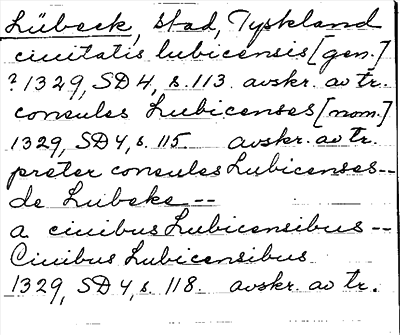 Lübeck, stad, Tyskland
ciuitatis lubicensis [gen.]
? 1329, SD 4, s. 113. avskr. av tr.
consules Lubicenses [nom.]
1329, SD 4, s. 115. avskr. av tr.
preter consules Lubicenses --
de Lubeke --
a ciuibus Lubicensibus --
Ciuibus Lubicensibus
1329, SD 4, s. 118. avskr. av tr.